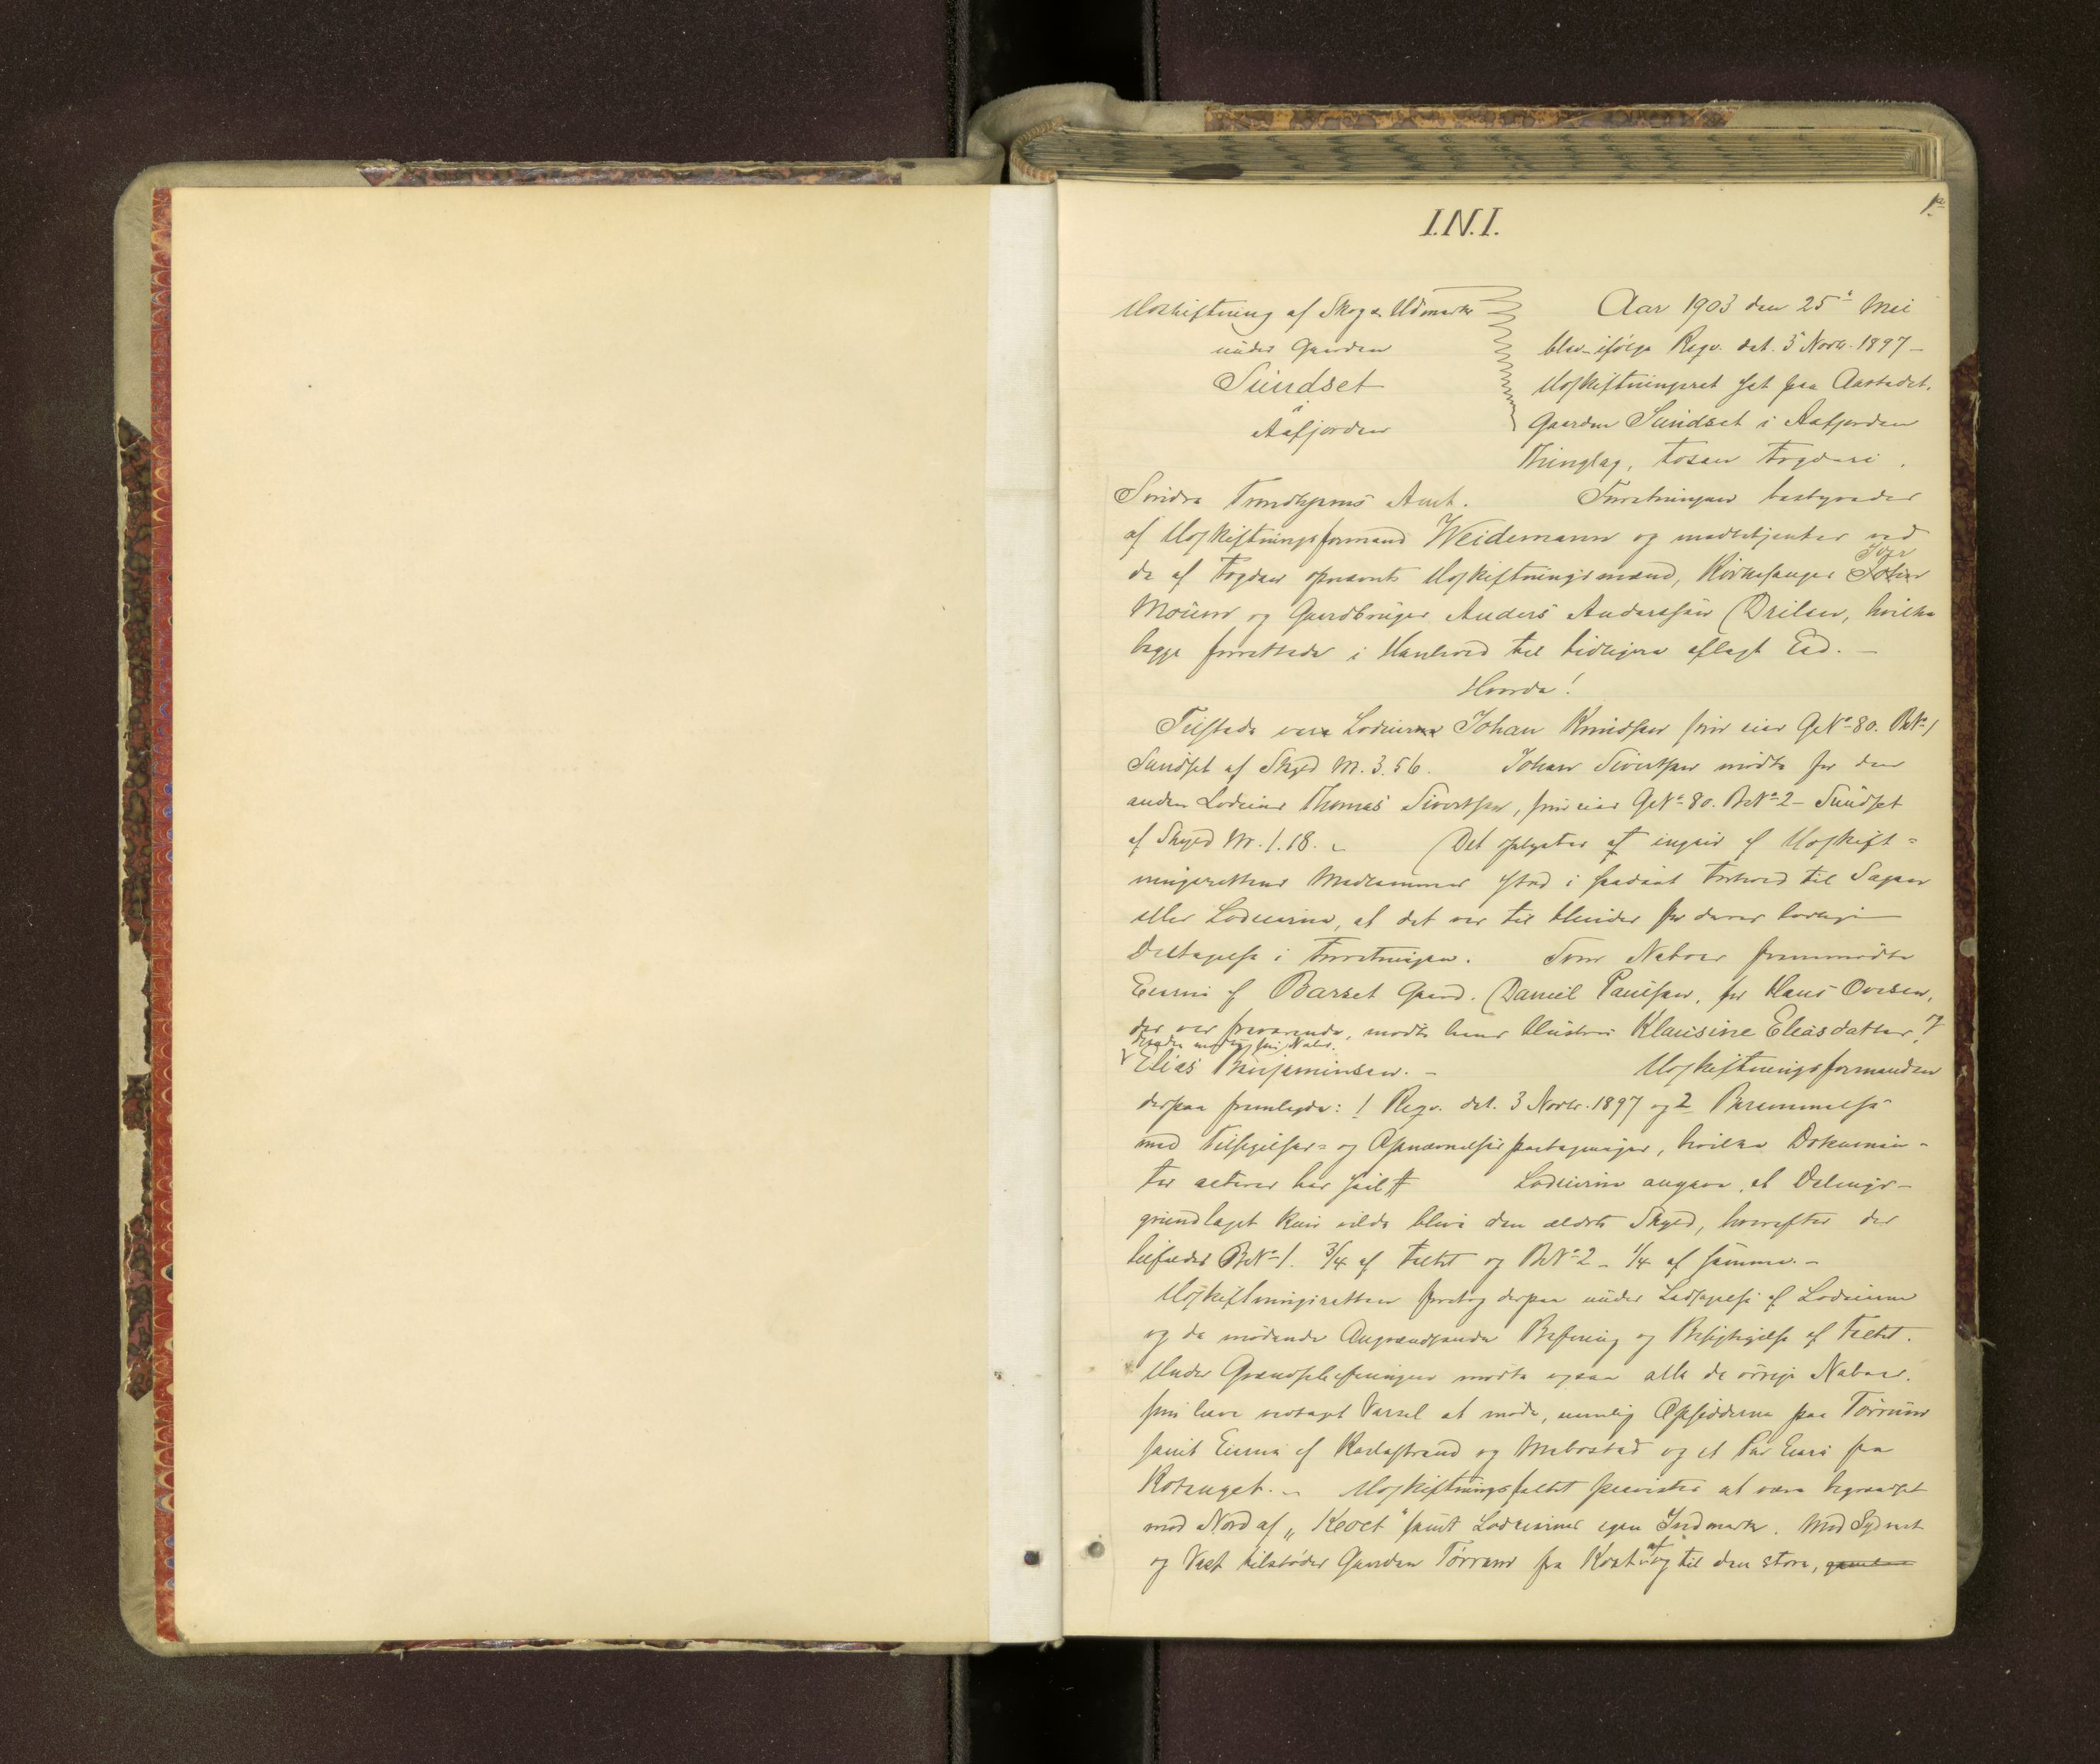 1a
I.N.I.
Udskiftning af Skog & Udmark
under Gaarden
Sundset
i
Aafjorden
Aar 1903 den 25de Mai
blev ifølge Reqv. dat. 3 Novbr. 1897 –
Udskiftningsret sat paa Aastedet,
Gaarden Sundset i Aafjorden
Thinglag, Fosen Fogderi.
Søndre Trondhjems Amt. Forretningen bestyredes
af Udskiftningsformand Weidemann og medbetjentes ved
de af Fogden opnævnte Udskiftningsmænd, Kirkesanger Iver
Mørum og Gaardbruger Anders Anderssen Drilen, hvilke
begge forrettede i Henhold til tidligere aflagt Ed. –
Hvorda!
Tilstede var Lodeier Johan Knudsen som eier G.No 80. B.No 1
Sundset af Skyld M. 3.56. Johan Sivertsen mødte for den
anden Lodeier Thomas Sivertsen, som eier G.No 80. B.No 2 – Sundset
af Skyld M. 1.18. – Det oplystes at ingen af Udskift=
ningsrettens Medlemmer stod i saadant Forhold til Sagen
eller Lodeierne, at det var til Hinder for deres lovlige
Deltagelse i Forretningen. Som Naboer fremmødte
Eierne af Barset Gaard. Daniel Paulsen, for Hans Ovesen,
der var fraværende, mødte hans Hustru Klausine Eliasdatter,
Elias Benjaminsen. – Udskiftningsformanden
derpaa fremlagde: 1 Reqv. dat. 3 Novbr. 1897 og 2 Berammelse
med Tilsigelses= og Opnævnelsespaategninger, hvilke Dokumen-
ter acteres her saalt Lodeierne angav, at Delings-
grundlaget kun vilde blive den ældste Skyld, hvorefter der
tilfalder B.No 1. 3/4 af Feltet og B.No 2 – 1/4 af samme. –
Udskiftningsretten foretog derpaa under Ledsagelse af Lodeierne
og de mødende Angrændsende Befaring og Besigtigelse af Feltet.
Under Grændsebefaringen mødte ogsaa alle de øvrige Naboer,
som have vedtaget Varsel at møde, nemlig Opsidderne paa Tørrum
samt Eierne af Karlsstrand og Mebostad og et Par Eiere fra
Kotenget. – Udskiftningsfeltet paavistes at være begrændset
mod Nord af "Keoet" samt Lodeiernes egen Indmark. Mod Sydvest
og Vest tilstøder Gaarden Tørrum fra og til den store,